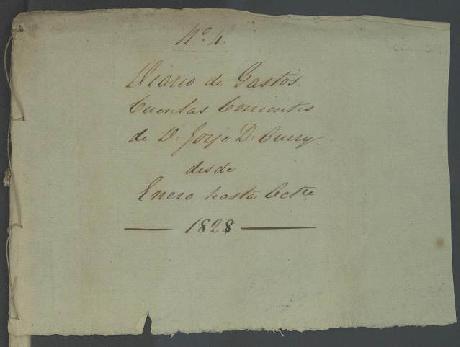 Nº 4.
Diario de Gastos
Cuentas Corrientes
de D. Jorje D.
desde
Enero hasta Octre
1828